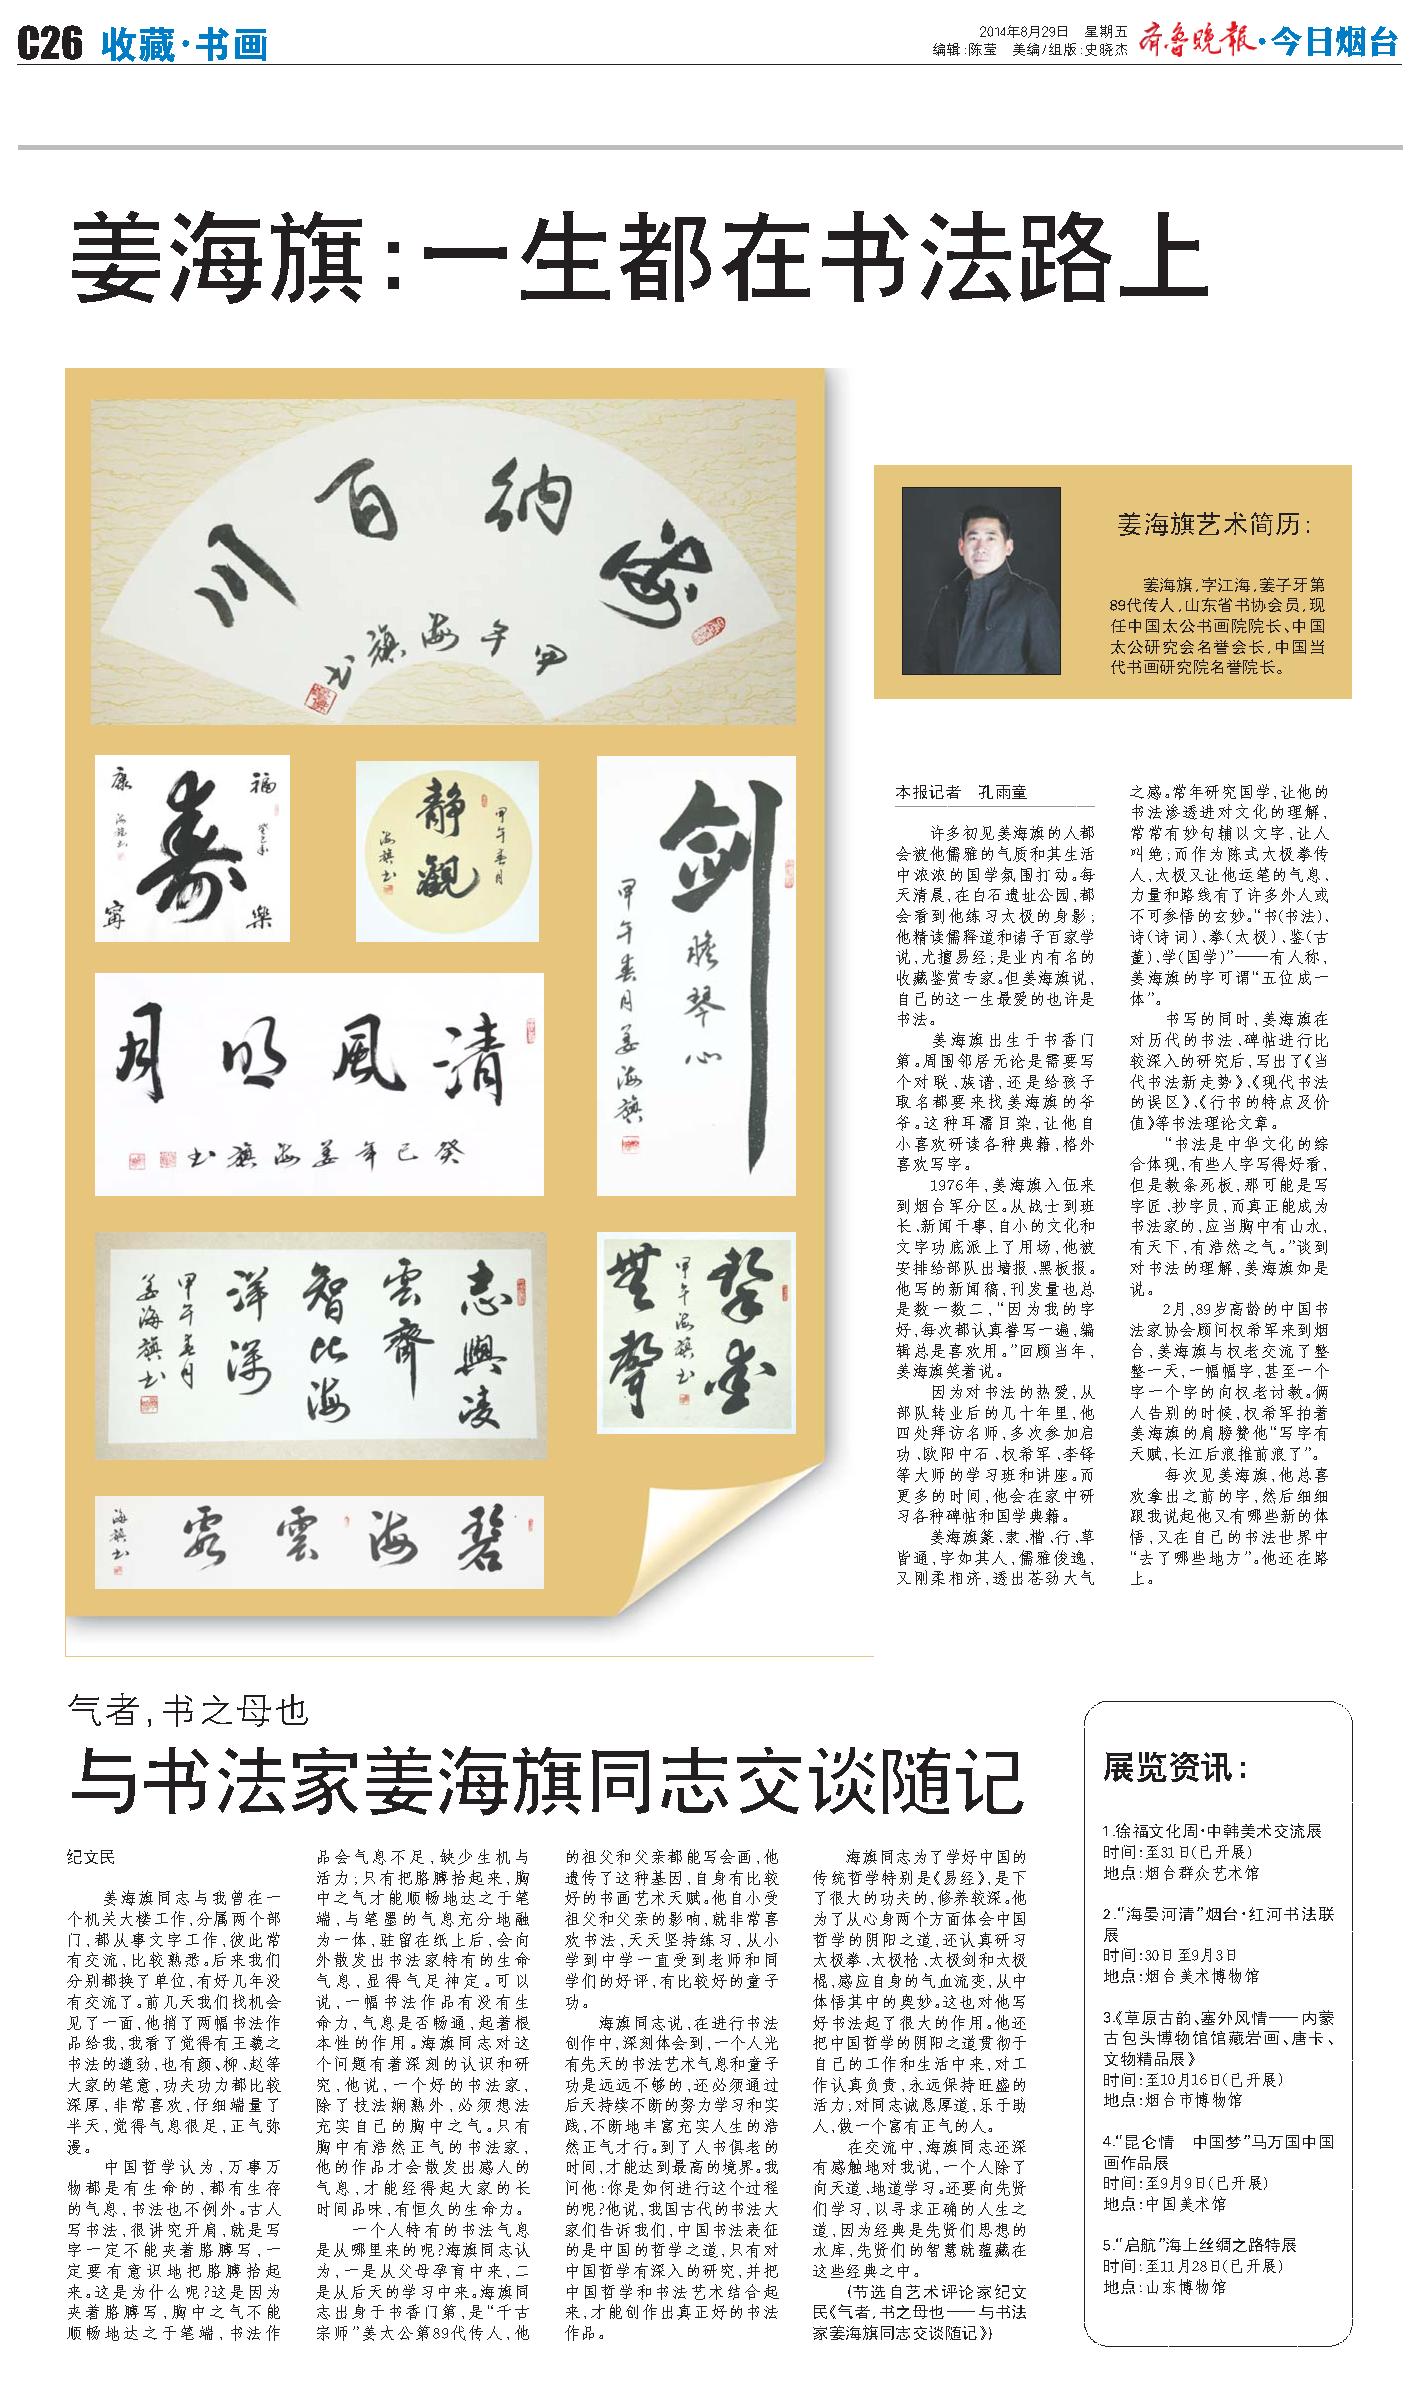 C26 收藏·书画
2014年8月29日　星期五
编辑:陈莹　美编/组版:史晓杰
齐鲁晚报·今日烟台
姜海旗:一生都在书法路上
海纳百川
甲午海旗书
福寿康宁樂
癸巳春
海旗书
静觀
甲午春月
海旗书
剑
胆琴心
甲午春月姜海旗
清風明月
癸巳年姜海旗书
志與凌
雲齊
智比海
洋深
甲午春月
姜海旗书
擊壺
無聲
甲午海旗书
碧海雲霞
海旗书
姜海旗艺术简历:
姜海旗,字江海,姜子牙第
89代传人,山东省书协会员,现
任中国太公书画院院长、中国
太公研究会名誉会长,中国当
代书画研究院名誉院长。
本报记者　孔雨童
许多初见姜海旗的人都
会被他儒雅的气质和其生活
中浓浓的国学氛围打动。每
天清晨,在白石遗址公园,都
会看到他练习太极的身影;
他精读儒释道和诸子百家学
说,尤擅易经;是业内有名的
收藏鉴赏专家。但姜海旗说,
自己的这一生最爱的也许是
书法。
姜海旗出生于书香门
第。周围邻居无论是需要写
个对联、族谱,还是给孩子
取名都要来找姜海旗的爷
爷。这种耳濡目染,让他自
小喜欢研读各种典籍,格外
喜欢写字。
1976年,姜海旗入伍来
到烟台军分区。从战士到班
长、新闻干事,自小的文化和
文字功底派上了用场,他被
安排给部队出墙报、黑板报。
他写的新闻稿,刊发量也总
是数一数二,“因为我的字
好,每次都认真誊写一遍,编
辑总是喜欢用。”回顾当年,
姜海旗笑着说。
因为对书法的热爱,从
部队转业后的几十年里,他
四处拜访名师,多次参加启
功、欧阳中石、权希军、李铎
等大师的学习班和讲座。而
更多的时间,他会在家中研
习各种碑帖和国学典籍。
姜海旗篆、隶、楷、行、草
皆通,字如其人,儒雅俊逸,
又刚柔相济,透出苍劲大气
之感。常年研究国学,让他的
书法渗透进对文化的理解,
常常有妙句辅以文字,让人
叫绝;而作为陈式太极拳传
人,太极又让他运笔的气息、
力量和路线有了许多外人或
不可参悟的玄妙。“书(书法)、
诗(诗词)、拳(太极)、鉴(古
董)、学(国学)”——有人称,
姜海旗的字可谓“五位成一
体”。
书写的同时,姜海旗在
对历代的书法、碑帖进行比
较深入的研究后,写出了《当
代书法新走势》、《现代书法
的误区》、《行书的特点及价
值》等书法理论文章。
“书法是中华文化的综
合体现,有些人字写得好看,
但是教条死板,那可能是写
字匠、抄字员,而真正能成为
书法家的,应当胸中有山水,
有天下,有浩然之气。”谈到
对书法的理解,姜海旗如是
说。
2月,89岁高龄的中国书
法家协会顾问权希军来到烟
台,姜海旗与权老交流了整
整一天,一幅幅字,甚至一个
字一个字的向权老讨教。俩
人告别的时候,权希军拍着
姜海旗的肩膀赞他“写字有
天赋,长江后浪推前浪了”。
每次见姜海旗,他总喜
欢拿出之前的字,然后细细
跟我说起他又有哪些新的体
悟,又在自己的书法世界中
“去了哪些地方”。他还在路
上。
气者,书之母也
与书法家姜海旗同志交谈随记
纪文民
姜海旗同志与我曾在一
个机关大楼工作,分属两个部
门,都从事文字工作,彼此常
有交流,比较熟悉。后来我们
分别都换了单位,有好几年没
有交流了。前几天我们找机会
见了一面,他捎了两幅书法作
品给我,我看了觉得有王羲之
书法的遒劲,也有颜、柳、赵等
大家的笔意,功夫功力都比较
深厚,非常喜欢,仔细端量了
半天,觉得气息很足,正气弥
漫。
中国哲学认为,万事万
物都是有生命的,都有生存
的气息,书法也不例外。古人
写书法,很讲究开肩,就是写
字一定不能夹着胳膊写,一
定要有意识地把胳膊抬起
来。这是为什么呢?这是因为
夹着胳膊写,胸中之气不能
顺畅地达之于笔端,书法作
品会气息不足,缺少生机与
活力;只有把胳膊抬起来,胸
中之气才能顺畅地达之于笔
端,与笔墨的气息充分地融
为一体,驻留在纸上后,会向
外散发出书法家特有的生命
气息,显得气足神定。可以
说,一幅书法作品有没有生
命力,气息是否畅通,起着根
本性的作用。海旗同志对这
个问题有着深刻的认识和研
究,他说,一个好的书法家,
除了技法娴熟外,必须想法
充实自己的胸中之气。只有
胸中有浩然正气的书法家,
他的作品才会散发出感人的
气息,才能经得起大家的长
时间品味,有恒久的生命力。
一个人特有的书法气息
是从哪里来的呢?海旗同志认
为,一是从父母孕育中来,二
是从后天的学习中来。海旗同
志出身于书香门第,是“千古
宗师”姜太公第89代传人,他
的祖父和父亲都能写会画,他
遗传了这种基因,自身有比较
好的书画艺术天赋。他自小受
祖父和父亲的影响,就非常喜
欢书法,天天坚持练习,从小
学到中学一直受到老师和同
学们的好评,有比较好的童子
功。
海旗同志说,在进行书法
创作中,深刻体会到,一个人光
有先天的书法艺术气息和童子
功是远远不够的,还必须通过
后天持续不断的努力学习和实
践,不断地丰富充实人生的浩
然正气才行。到了人书俱老的
时间,才能达到最高的境界。我
问他:你是如何进行这个过程
的呢?他说,我国古代的书法大
家们告诉我们,中国书法表征
的是中国的哲学之道,只有对
中国哲学有深入的研究,并把
中国哲学和书法艺术结合起
来,才能创作出真正好的书法
作品。
海旗同志为了学好中国的
传统哲学特别是《易经》,是下
了很大的功夫的,修养较深。他
为了从心身两个方面体会中国
哲学的阴阳之道,还认真研习
太极拳、太极枪、太极剑和太极
棍,感应自身的气血流变,从中
体悟其中的奥妙。这也对他写
好书法起了很大的作用。他还
把中国哲学的阴阳之道贯彻于
自己的工作和生活中来,对工
作认真负责,永远保持旺盛的
活力;对同志诚恳厚道,乐于助
人,做一个富有正气的人。
在交流中,海旗同志还深
有感触地对我说,一个人除了
向天道、地道学习。还要向先贤
们学习,以寻求正确的人生之
道,因为经典是先贤们思想的
水库,先贤们的智慧就蕴藏在
这些经典之中。
(节选自艺术评论家纪文
民《气者,书之母也——与书法
家姜海旗同志交谈随记》)
展览资讯:
1.徐福文化周·中韩美术交流展
时间:至31日(已开展)
地点:烟台群众艺术馆
2.“海晏河清”烟台·红河书法联
展
时间:30日至9月3日
地点:烟台美术博物馆
3.《草原古韵、塞外风情——内蒙
古包头博物馆馆藏岩画、唐卡、
文物精品展》
时间:至10月16日(已开展)
地点:烟台市博物馆
4.“昆仑情　中国梦”马万国中国
画作品展
时间:至9月9日(已开展)
地点:中国美术馆
5.“启航”海上丝绸之路特展
时间:至11月28日(已开展)
地点:山东博物馆